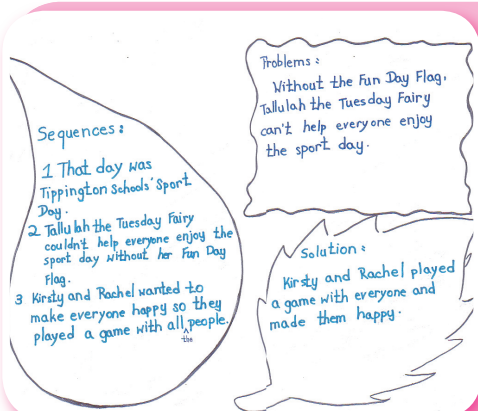 Sequences:
1 That day was
Tippington Schools' Sport
Day.
2 Tallulah the Tuesday Fairy
couldn't help everyone enjoy the
sport day without her Fun Day
Flag.
3 Kirsty and Rachel wanted to
make everyone happy so they
played a game with all the people.
Problems:
Without the Fun Day Flag,
Tallulah the Tuesday Fairy
can't help everyone enjoy
the sport day.
Solution:
Kirsty and Rachel played
a game with everyone and
made them happy.